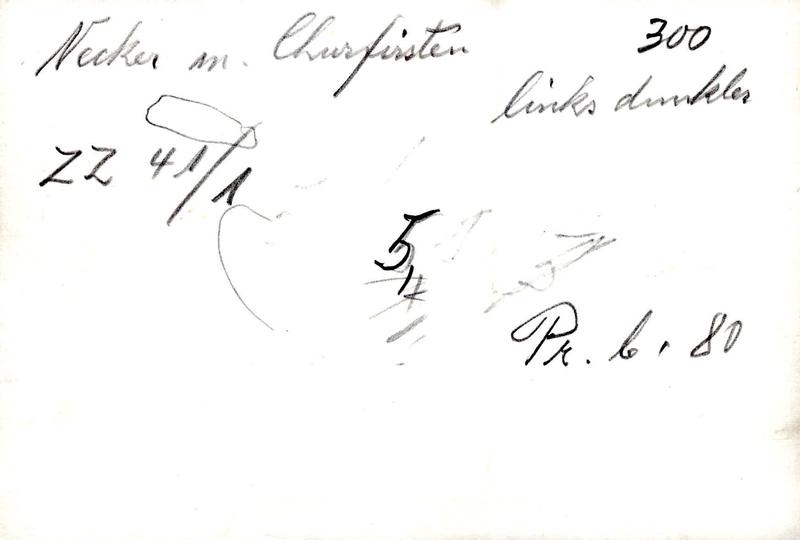 Necker m. Churfirsten 300
links dunkler
ZZ 41/1
5,
Pr. 6.80